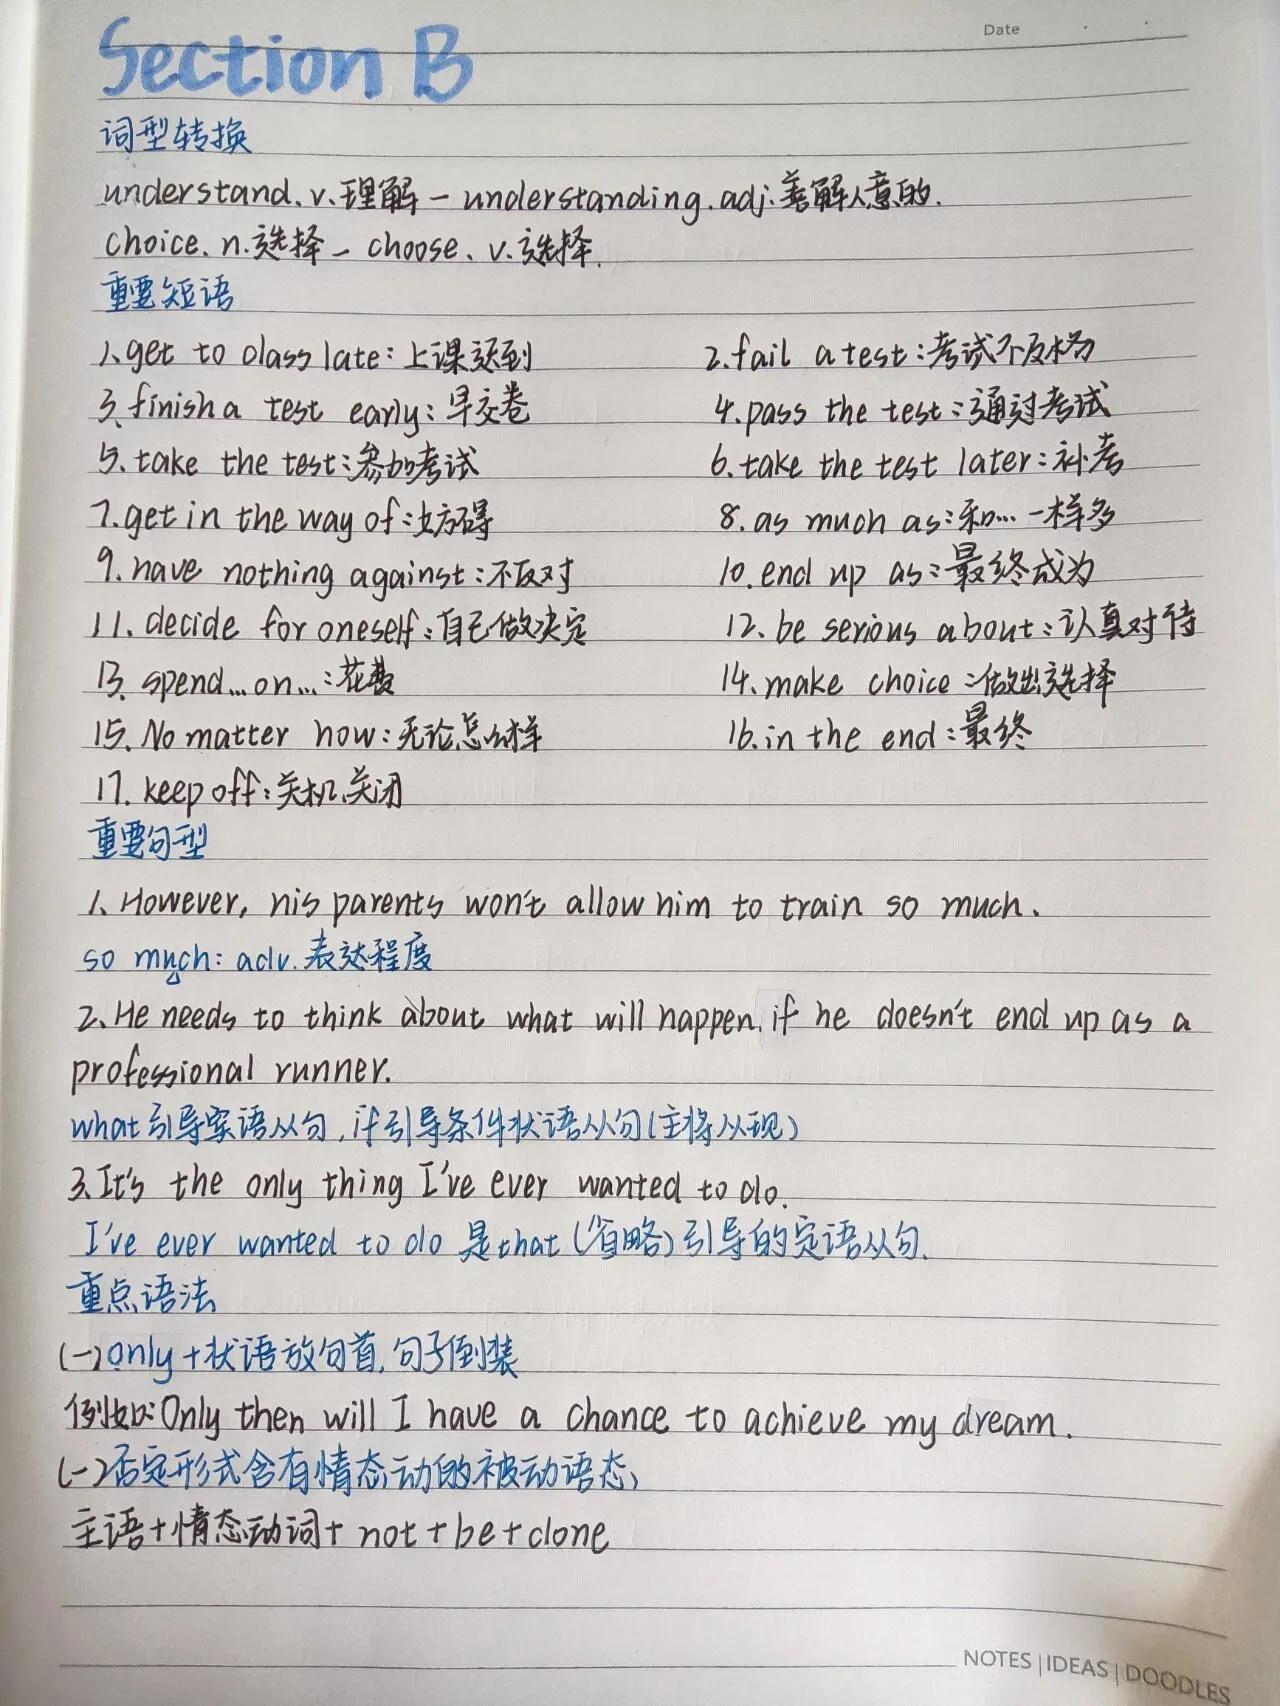 Date
Section B
词型转换
understand. v.理解 — understanding. adj.善解人意的.
choice. n.选择 — choose. v.选择.
重要短语
1.get to class late:上课迟到 2.fail a test:考试不及格
3.finish a test early:早交卷 4.pass the test:通过考试
5.take the test:参加考试 6.take the test later:补考
7.get in the way of:妨碍 8.as much as:和…一样多
9.have nothing against:不反对 10.end up as:最终成为
11.decide for oneself:自己做决定 12.be serious about:认真对待
13.spend…on…:花费 14.make choice:做出选择
15.No matter how:无论怎么样 16.in the end:最终
17.keep off:关机、关闭
重要句型
1.However, his parents won't allow him to train so much.
so much: adv.表达程度
2.He needs to think about what will happen, if he doesn't end up as a
professional runner.
what引导宾语从句, if引导条件状语从句(主将从现)
3.It's the only thing I've ever wanted to do.
I've ever wanted to do 是that(省略)引导的定语从句.
重点语法
(一)only+状语放句首,句子倒装
例如:Only then will I have a chance to achieve my dream.
(一)否定形式含有情态动的被动语态:
主语+情态动词+not+be+done
NOTES|IDEAS|DOODLES